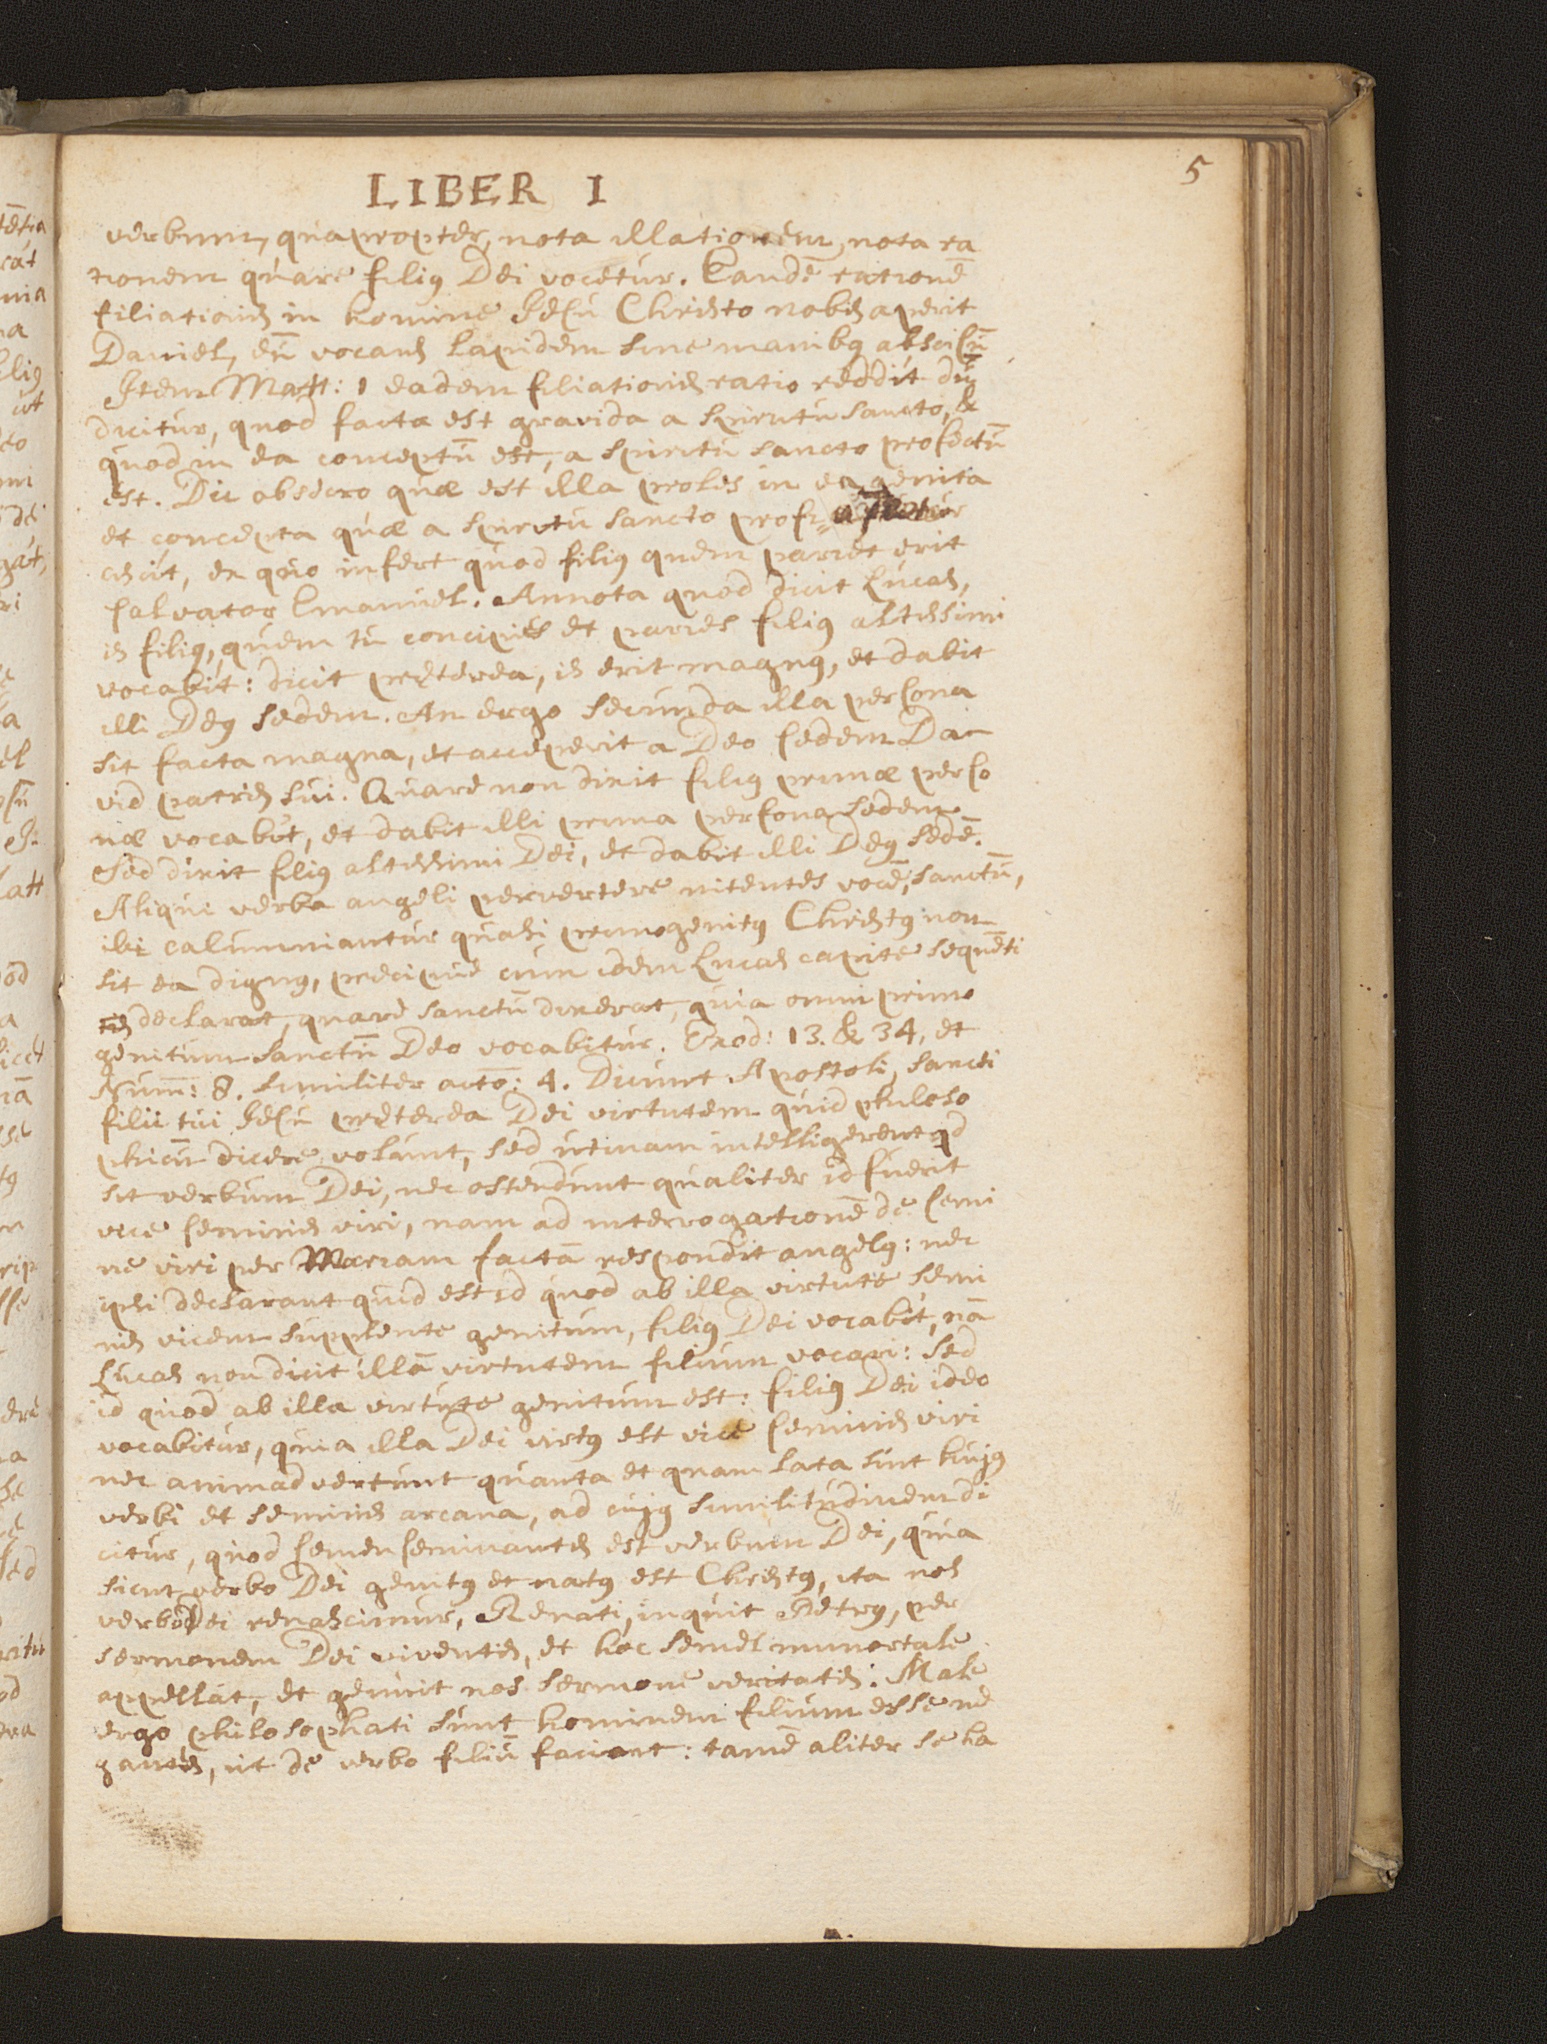 5
LIBER I
verbum, quapropter, nota illationem, nota ra
tionem quare filiꝰ Dei vocetur. Eandē rationē
filiationis in homine Jesu Christo nobis aperit
Daniel, eū vocans lapidem sine manibꝰ abscisū
Item Matt: 1 eadem filiationis ratio reddit dū
dicitur, quod facta est gravida a spiritu sancto, &
quod in ea conceptū est, a spiritu sancto profectū
est. Dic obsecro quæ est illa proles in ea genita
et concepta quæ a spiritu sancto profi=
ciscit, ex quo infert quod filiꝰ quem pariet erit
salvator Emanuel. Annota quod dicit Lucas,
is filiꝰ, quem tu concipies et paries filiꝰ altissimi
vocabit: dicit pręterea, is erit magnꝰ, et dabit
illi Deꝰ sedem. An ergo secunda illa persona
sit facta magna, et acceperit a Deo sedem Da-
vid patris sui. Quare non dixit filiꝰ primæ perso
næ vocabit, et dabit illi prima persona sedem.
Sed dixit filiꝰ altissimi Dei, et dabit illi Deꝰ sedē.
Aliqui verba angeli pervertere nitentes vocē, sanctū,
ibi calumniantur quasi primogenitꝰ Christꝰ non
sit ea dignꝰ, pręcipue cum idem Lucas capite sequēti
declarat, quare sanctū dixerat, quia omni primo
genitum sanctū Deo vocabitur. Exod: 13. & 34, et
Num̄: 8. similiter actō: 4. Dicunt Apostoli, sancti
filii tui Jesu pręterea Dei virtutem quid philoso
phicū dicere volunt, sed utinam intelligerent qd
sit verbum Dei, nec ostendunt qualiter id fuerit
vice seminis viri, nam ad interrogationē de semi
ne viri per Mariam factā respondit angelꝰ: nec
ipsi declarant quid est id quod ab illa virtute semi
nis vicem supplente genitum, filiꝰ Dei vocabit, nā
Lucas non dicit illā virtutem filium vocari: sed
id quod ab illa virtute genitum est: filiꝰ Dei ideo
vocabitur, quia illa Dei virtꝰ est vice seminis viri
nec animadvertunt quanta et quam lata sint hujꝰ
verbi et seminis arcana, ad cujꝰ similitudinem di
citur, quod semen seminantis est verbum Dei, quia
sicut verbo Dei genitꝰ et natꝰ est Christꝰ, ita nos
verbo Dei renascimur, Renati, inquit Petrꝰ, per
sermonem Dei viventis, et hoc semel immortale
appellat, et genuit nos sermone veritatis: Male
ergo philosophati sunt hominem filium esse ne
gantes, ut de verbo filiū faciant: tamē aliter se ha